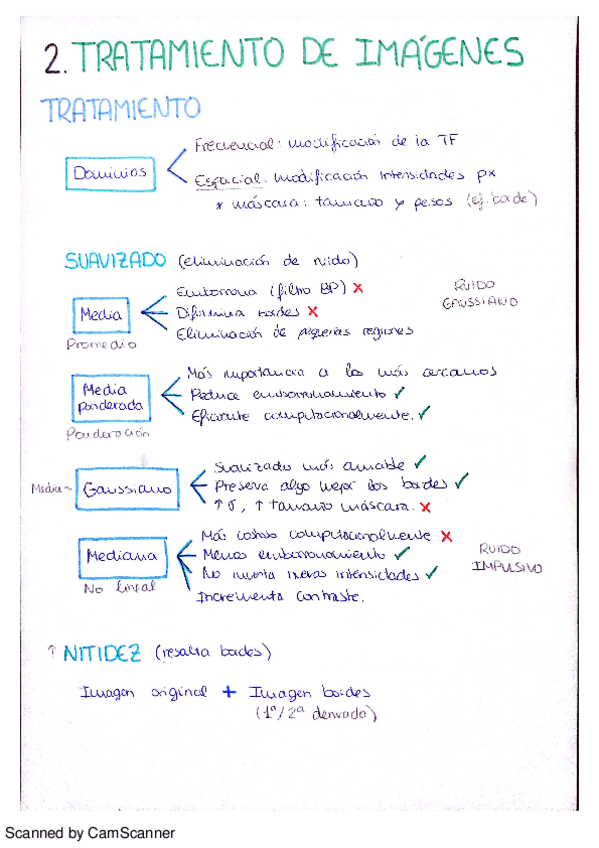 2. TRATAMIENTO DE IMÁGENES
TRATAMIENTO
Dominios
Frecuencial: modificación de la TF
Espacial: modificación intensidades px
* máscara: tamaño y pesos (ej. borde)
SUAVIZADO (eliminación de ruido)
Media
Promedio
Emborrona (filtro BP) ✗
Difumina bordes ✗
Eliminación de pequeñas regiones
RUIDO
GAUSSIANO
Media
Ponderada
Ponderación
Más importancia a los más cercanos
Reduce emborronamiento ✓
Eficiente computacionalmente. ✓
Media ~
Gaussiano
Suavizado más amable ✓
Preserva algo mejor los bordes ✓
↑ σ, ↑ tamaño máscara. ✗
Mediana
No lineal
Más costoso computacionalmente ✗
Menos emborronamiento ✓
No inventa nuevas intensidades ✓
Incrementa contraste.
RUIDO
IMPULSIVO
↑ NITIDEZ (resalta bordes)
Imagen original + Imagen bordes
(1ª/2ª derivada)
Scanned by CamScanner